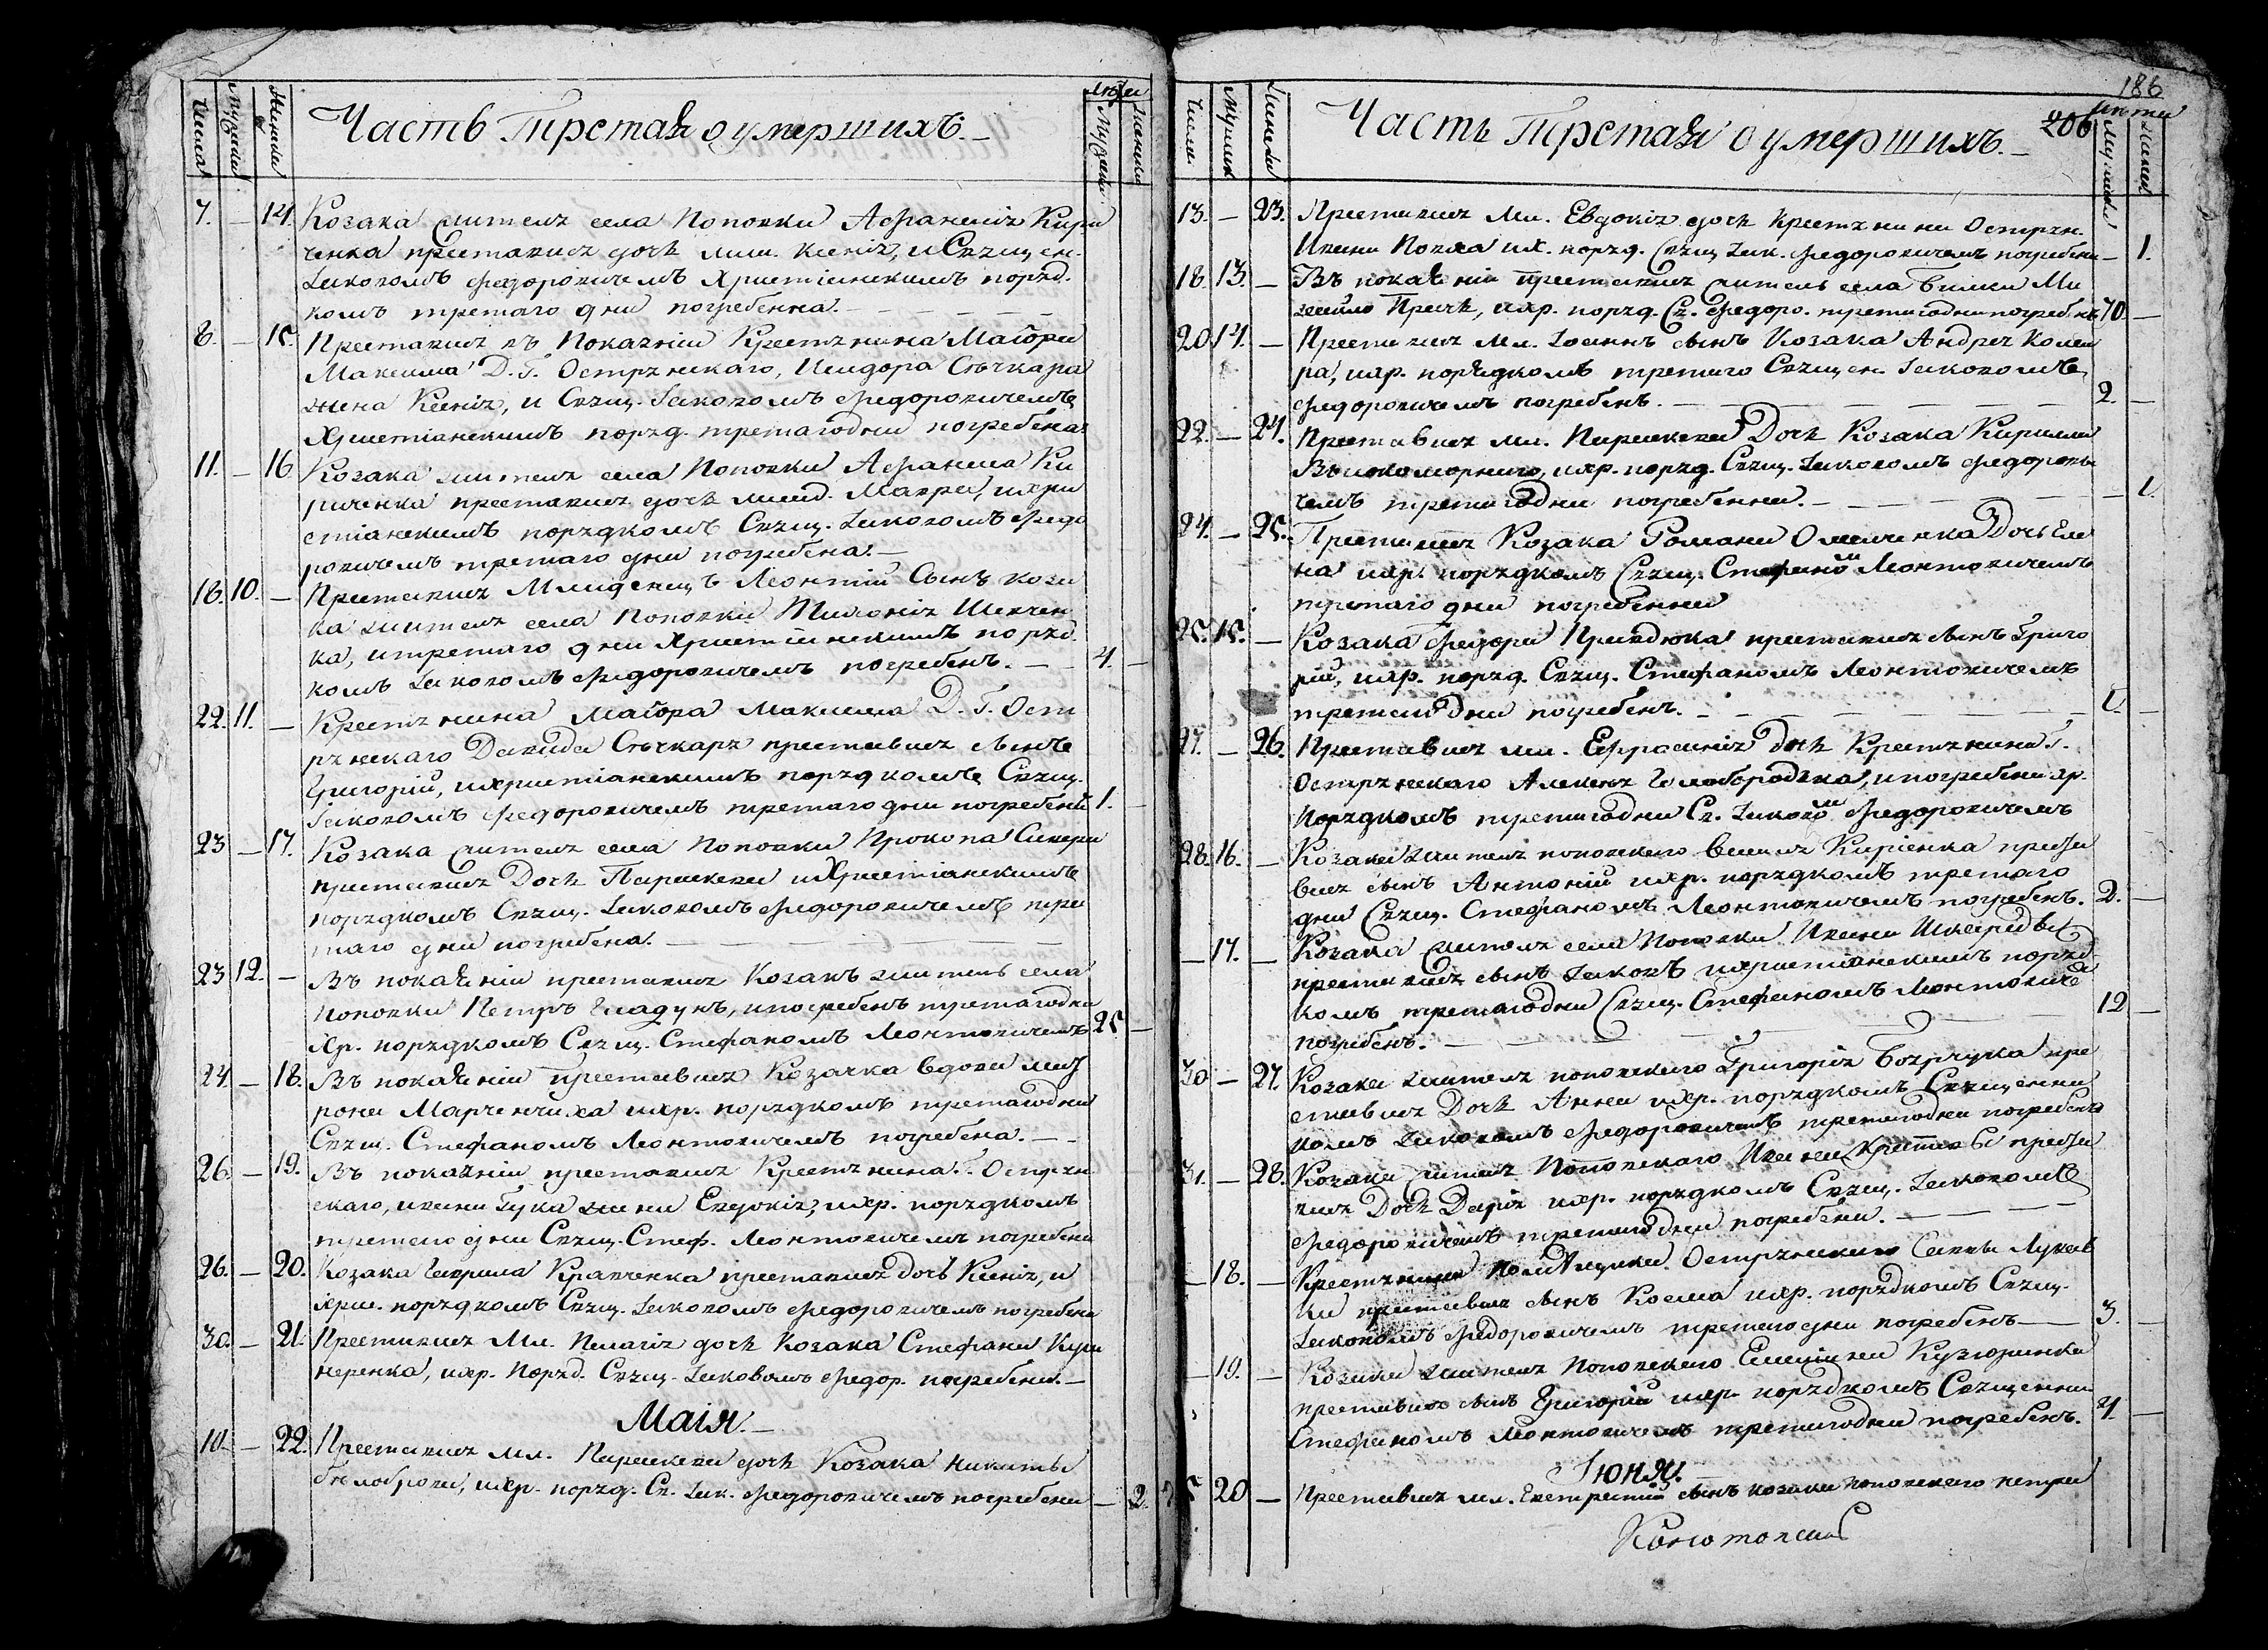 Числа
Мужска
Женска
Часть Третая о умершихъ.
лѣта
Мужеска
Женска
7. — 14. Козака жителя села Поповки Афанасія Кири
ченка преставися дочь млад. Ксенія, и Свящ ен.
Іаковомъ Федоровичемъ Христіанскимъ поряд.
комъ третаго дни погребенна.
8. — 15. Преставися въ Покаяніи Крестянина Маіора
Максима Д. Г. Острянскаго, Исидора Сѣчкара
жена Ксенія, и Свящ. Іаковомъ Федоровичемъ
Христіанскимъ поряд. третагодни погребена
11. — 16 Козака жителя села Поповки Афанасія Ки
риченка преставися дочь млад. Мавра, и хри
стіанскимъ порядкомъ Свящ. Іаковомъ Федо
ровичемъ третаго дни погребена.
18. 10. — Преставися Младенецъ Леонтій Сынъ коза
ка жителя села Поповки Тимофія Шевчен
ка, и третаго дни Христіанскимъ поряд.
комъ Іаковомъ Федоровичемъ погребенъ. 4. —
22. 11. — Крестянина Маіора Максима Д. Г. Ост
рянскаго Давида Сѣчкаря преставися сынъ
Григорій, и христіанскимъ порядкомъ Свящ.
Іаковомъ Федоровичемъ третаго дни погребенъ 1. —
23 — 17. Козака жителя села Поповки Прокопа
преставися Дочь Параскева и Христіанскимъ
порядкомъ Свящ. Іаковомъ Федоровичемъ тре
таго дни погребена.
23 12. — Въ покаяніи преставися Козакъ житель села
Поповки Петръ Гладунъ, и погребенъ третагодни
Хр. порядкомъ Свящ. Стефаномъ Леонтовичемъ 25 —
24. — 18. Въ покаяніи преставися Козачка вдова
Марченчиха и хр. порядкомъ третагодни
Свящ. Стефаномъ Леонтовичемъ погребена.
26. — 19. Въ покаяніи преставися Крестянина Г. Острян
скаго, Ивана Гука жена Евдокія, и хр. порядкомъ
третаго дни Свящ. Стеф. Леонтовичемъ погребена
26. — 20. Козака Гаврила Кравченка преставися дочь Ксенія, и
Хрис. порядкомъ Свящ. Іаковомъ Федоровичемъ погребена
30. — 21. Преставися Мл. Пелагія дочь Козака Стефана
и хр. Поряд. Свящ. Іаковомъ Федор. погребена.
Маія.
10. — 22. Преставися мл. Параскева дочь Козака Никиты
Бѣлоброви, и хр. поряд. Св. Іак. Федоровичемъ погребена — 2.
186
206
Числа
Мужеска
Женска
Часть Третая о умершихъ.
лѣта
Мужеска
Женска
13. — 23. Преставися Мл. Евдокія дочь Крестянина Острян.
Ивана и х. поряд. Свящ. Іак. Федоровичемъ погребена — 1.
18. 13. — Въ покаяніи преставися житель села Билки Ми
хайло и хр. поряд. Св. Федоро. третагодни погребенъ 70. —
20 14. — Преставися Мл. Іоаннъ сынъ Козака Андрея
и хр. порядкомъ третаго Священ. Іаковомъ
Федоровичемъ погребенъ. 2. —
22. — 24. Преставися мл. Параскева Дочь Козака Кирилла
и хр. поряд. Свящ. Іаковомъ Федорови
чемъ третагодни погребенна. — 1.
24. — 25. Преставися Козака Романа Омелченка Дочь Еле
на и хр. порядкомъ Свящ. Стефаномъ Леонтовичемъ
третаго дни погребенна
25. 15. — Козака Федора преставися сынъ Григо
рій, и хр. поряд. Свящ. Стефаномъ Леонтовичемъ
третаго дни погребенъ. 1. —
27. — 26. Преставися мл. Ефросинія дочь Крестянина Г.
Острянскаго Алексія Голобородка, и погребена хр.
порядкомъ третагодни Св. Іаковомъ Федоровичемъ
28. 16. — Козака жителя поповскаго Василя Киріенка преста
вися сынъ Антоній и хр. порядкомъ третаго
дни Свящ. Стефаномъ Леонтовичемъ погребенъ. 2. —
— 17. — Козака жителя села Поповки Ивана
преставися сынъ Іаковъ и христіанскимъ поряд
комъ третагодни Свящ. Стефаномъ Леонтовиче
погребенъ. 12 —
30 — 27. Козака жителя поповскаго Григорія пре
ставися Дочь Анна и хр. порядкомъ Священни
комъ Іаковомъ Федоровичемъ третагодни погребена
31. — 28. Козака жителя Поповскаго Ивана преста
вися Дочь Дарія и хр. порядкомъ Свящ. Іаковомъ
Федоровичемъ третаго дни погребена.
— 18. — Крестянина Помѣщика Острянскаго Савы
преставися сынъ Косма и хр. порядкомъ Свящ.
Іаковомъ Федоровичемъ третаго дни погребенъ 3. —
— 19. — Козака жителя Поповскаго
преставися сынъ Григорій и хр. порядкомъ Священни
Стефаномъ Леонтовичемъ третагодни погребенъ. 4. —
Іюня.
5 20 — Преставися мл. Евстратій сынъ козака поповскаго Петра